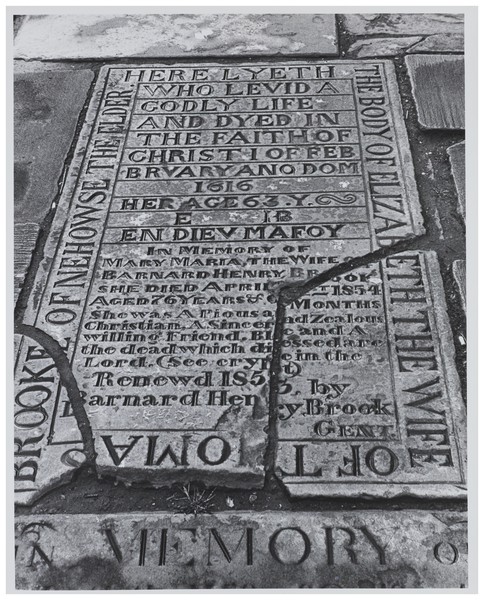 HERE LYETH
THE BODY OF ELIZABETH THE WIFE
OF T OMA
BROOKE OF NEHOWSE THE ELDER.
WHO LEVID A
GODLY LIFE
AND DYED IN
THE FAITH OF
CHRIST I OF FEB
BRVARY ANO DOM
1616
HER AGE 63. Y.
E IB
EN DIEV MAFOY
IN MEMORY OF
MARY MARIA, THE WIFE OF
BARNARD HENRY BROOK
SHE DIED APRIL 1854
AGED 76 YEARS & MONTHS
She was A Pious and Zealous
Christian. A. Sincere and A
willing Friend. Blessed are
the dead which die in the
Lord. (See crypt)
Renewd 1853, by
Barnard Henry, Brook
GENT.
IN MEMORY O